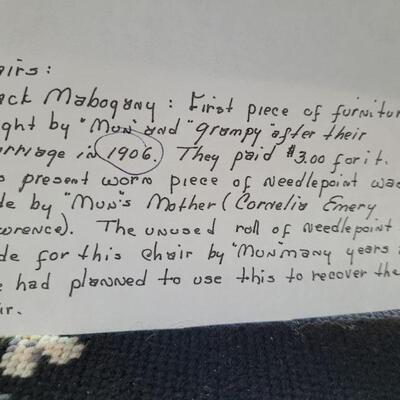 airs:
ack Mahogany: First piece of furnitur
ught by "Mun" and "Grampy" after their
arriage in 1906. They paid $3.00 for it.
s present worn piece of needlepoint was
de by "Mun's Mother (Cornelia Emery
wrence). The unused roll of needlepoint
de for this chair by "Mun" many years
e had planned to use this to recover the
ir.